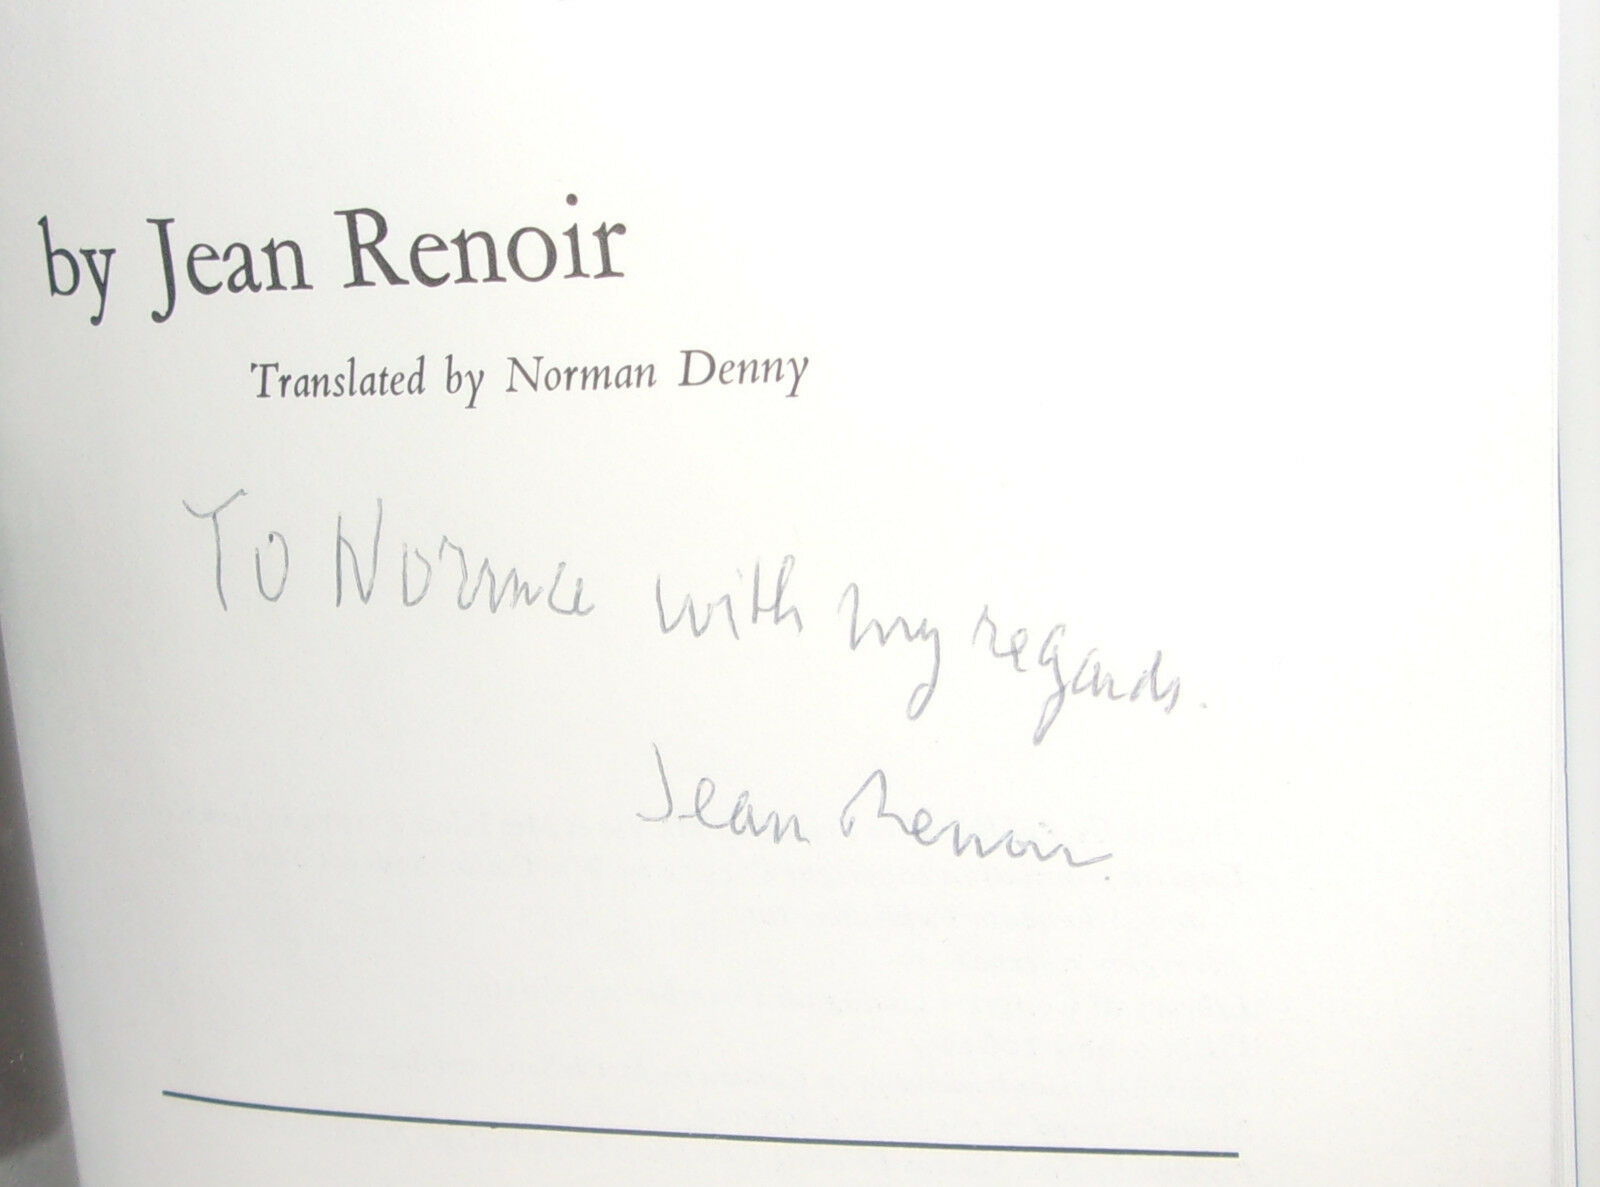 by Jean Renoir
Translated by Norman Denny
To with my regards.
Jean Renoir.